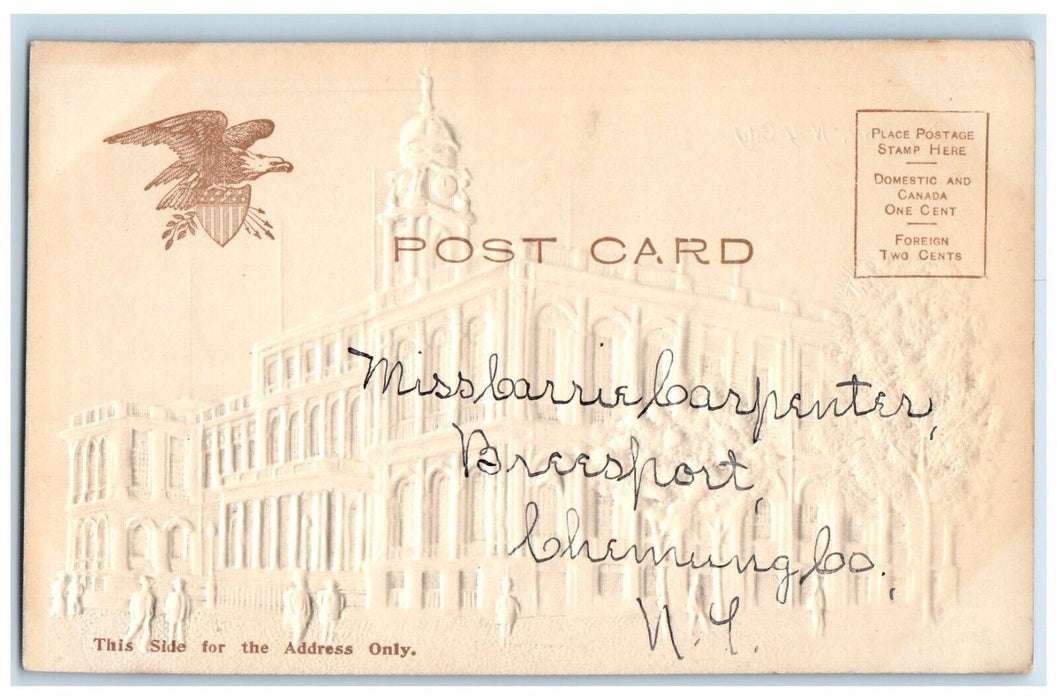 PLACE POSTAGE
STAMP HERE
DOMESTIC AND
CANADA
ONE CENT
FOREIGN
TWO CENTS
POST CARD
Miss Carrie Carpenter,
Breesport,
Chemung Co.,
N.Y.
This Side for the Address Only.